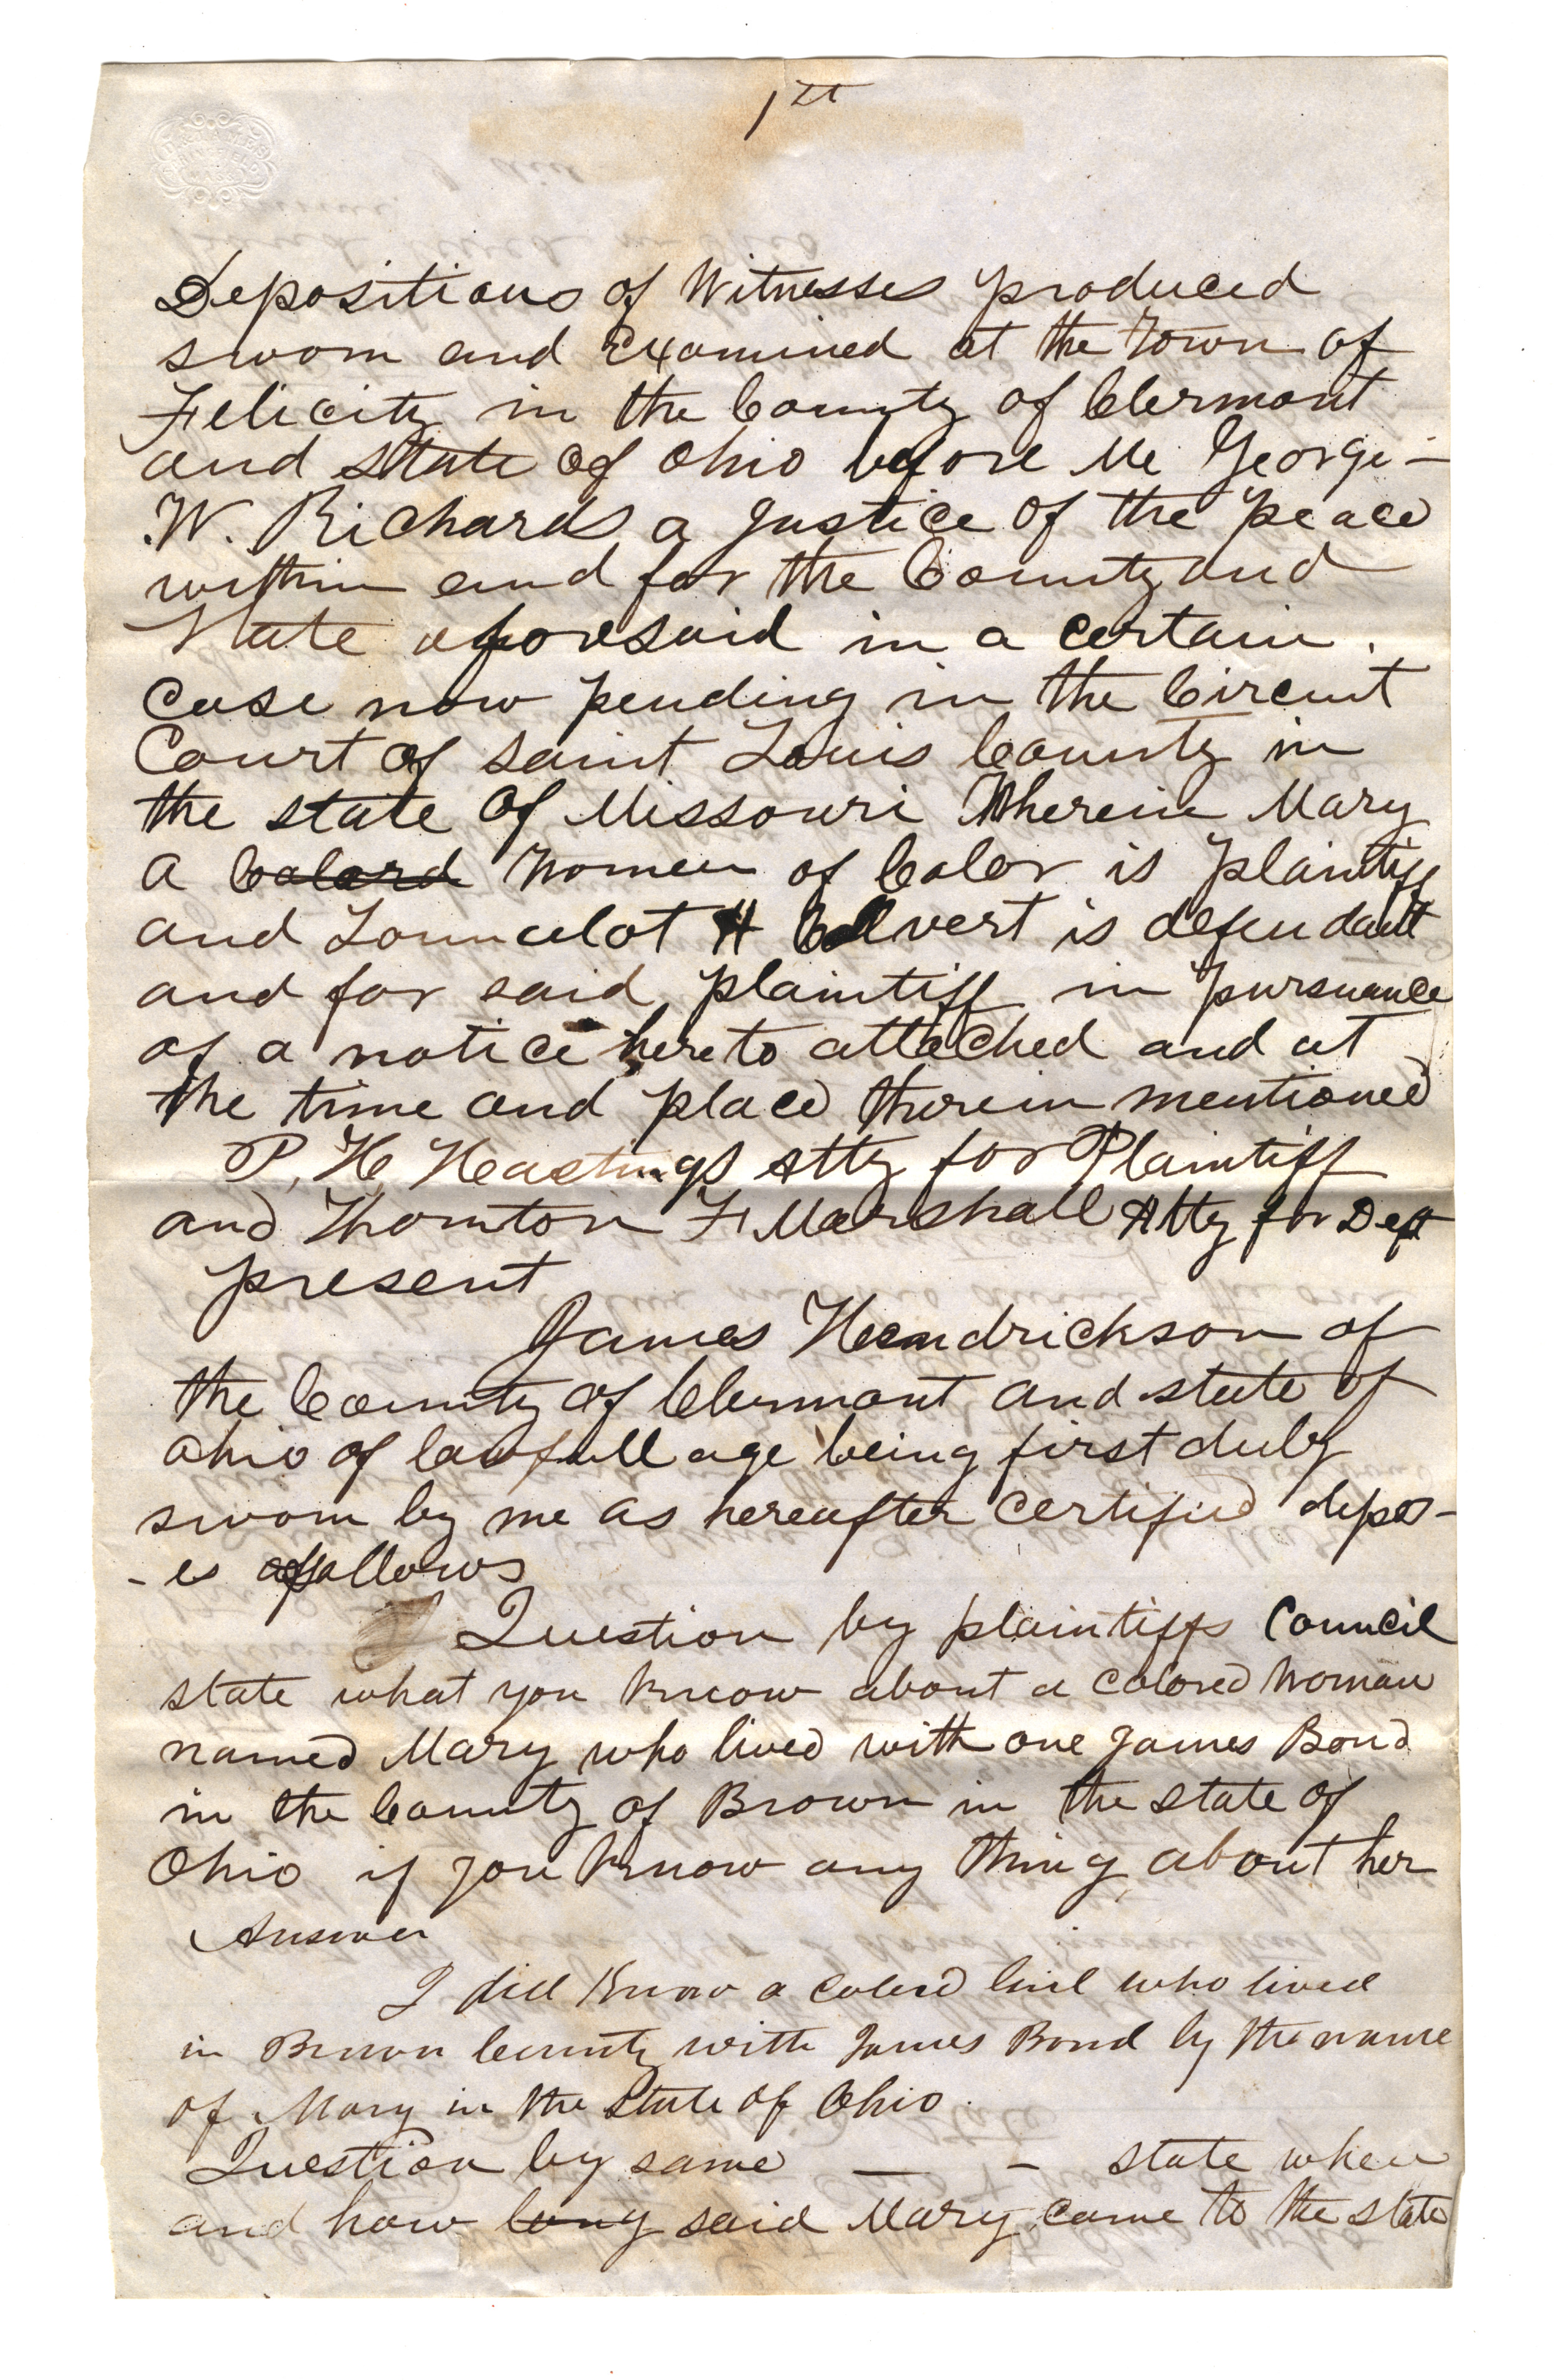 1st
Depositions of Witnesses produced
sworn and Examined at the Town of
Felicity in the County of Clermont
and State of Ohio before Me George -
W. Richards a Justice of the peace
within and for the County and
State aforesaid in a certain
Case now pending in the Circuit
Court of Saint Louis County in
the state of Missouri Wherein Mary
a Colord Women of Color is plaintiff
and Launcelot H Calvert is defendant
and for said plaintiff in pursuance
of a notice hereto attached and at
the time and place therein mentioned
P. H. Heastings Atty for Plaintiff
and Thornton F Marshall Atty for Deft
present
James Hendrickson of
the County of Clermont and state of
Ohio of lawfull age being first duly
sworn by me as hereafter Certified depos-
-es as follows
Question by plaintiffs Council
state what you know about a Colored Woman
named Mary who lived with one James Bond
in the County of Brown in the state of
Ohio if you know any thing about her
Answer
I did Know a Colerd Girl who lived
in Brown County with James Bond by the name
of Mary in the State of Ohio.
Question by same — - state when
and how long said Mary came to the state